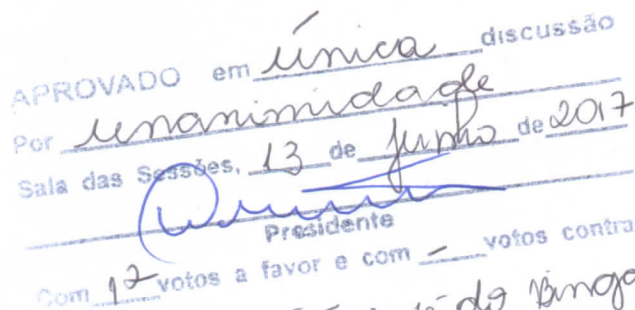 APROVADO em única discussão
Por unanimidade
Sala das Sessões, 13 de junho de 2017
Presidente
Com 12 votos a favor e com - votos contra
do Bingo